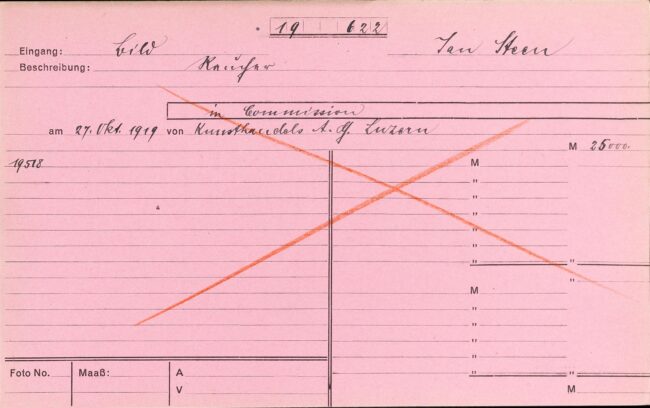 19 622
Eingang: Bild Jan Steen
Beschreibung: Raucher
in Commission
am 27. Okt. 1919 von Kunsthandels A. G Luzern
M 25000.
19518 M
"
"
"
"
" "
"
M
"
"
"
" "
Foto No. Maaß: A
V M